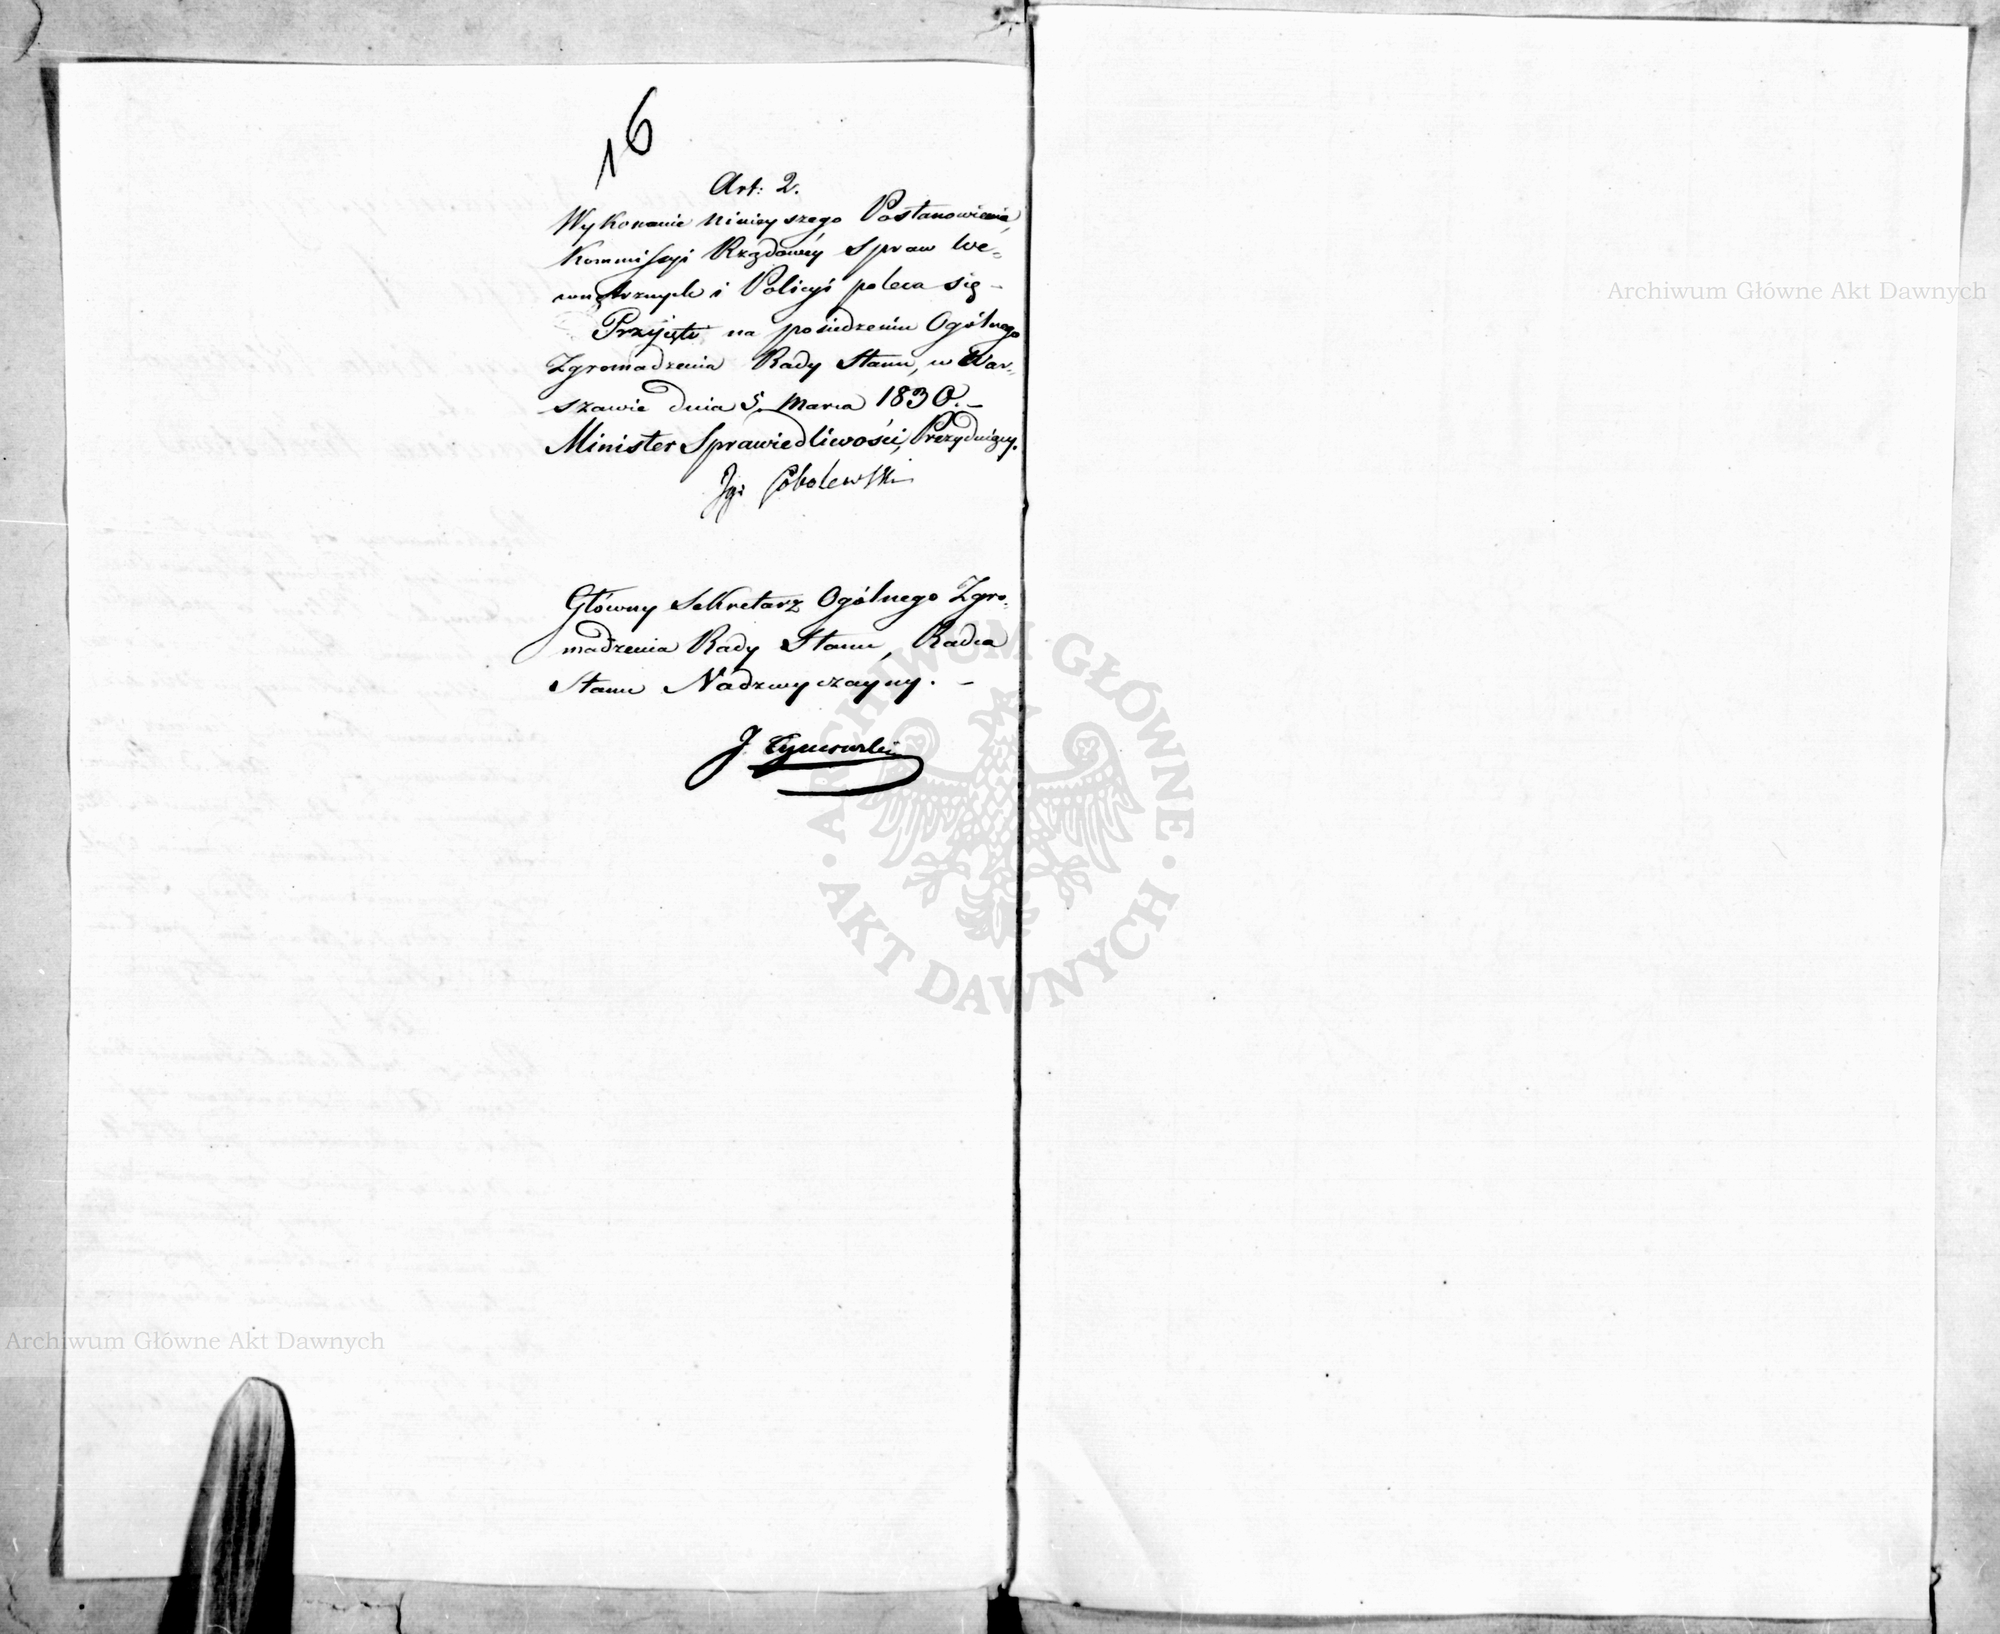 16
Art: 2.
Wykonanie ninieyszego Postanowienia,
Kommissyi Rządowéy Spraw We-
wnętrznych i Policyi poleca się –
Przyjęto na posiedzeniu Ogólnego
Zgromadzenia Rady Stanu, w War-
szawie dnia 5. Marca 1830. –
Minister Sprawiedliwości, Prezyduiący.
Ig: Sobolewski
Główny Sekretarz Ogólnego Zgro-
madzenia Rady Stanu, Radca
Stanu Nadzwyczayny. –
J. Tymowski
Archiwum Główne Akt Dawnych
Archiwum Główne Akt Dawnych
ARCHIWUM GŁÓWNE · AKT DAWNYCH ·